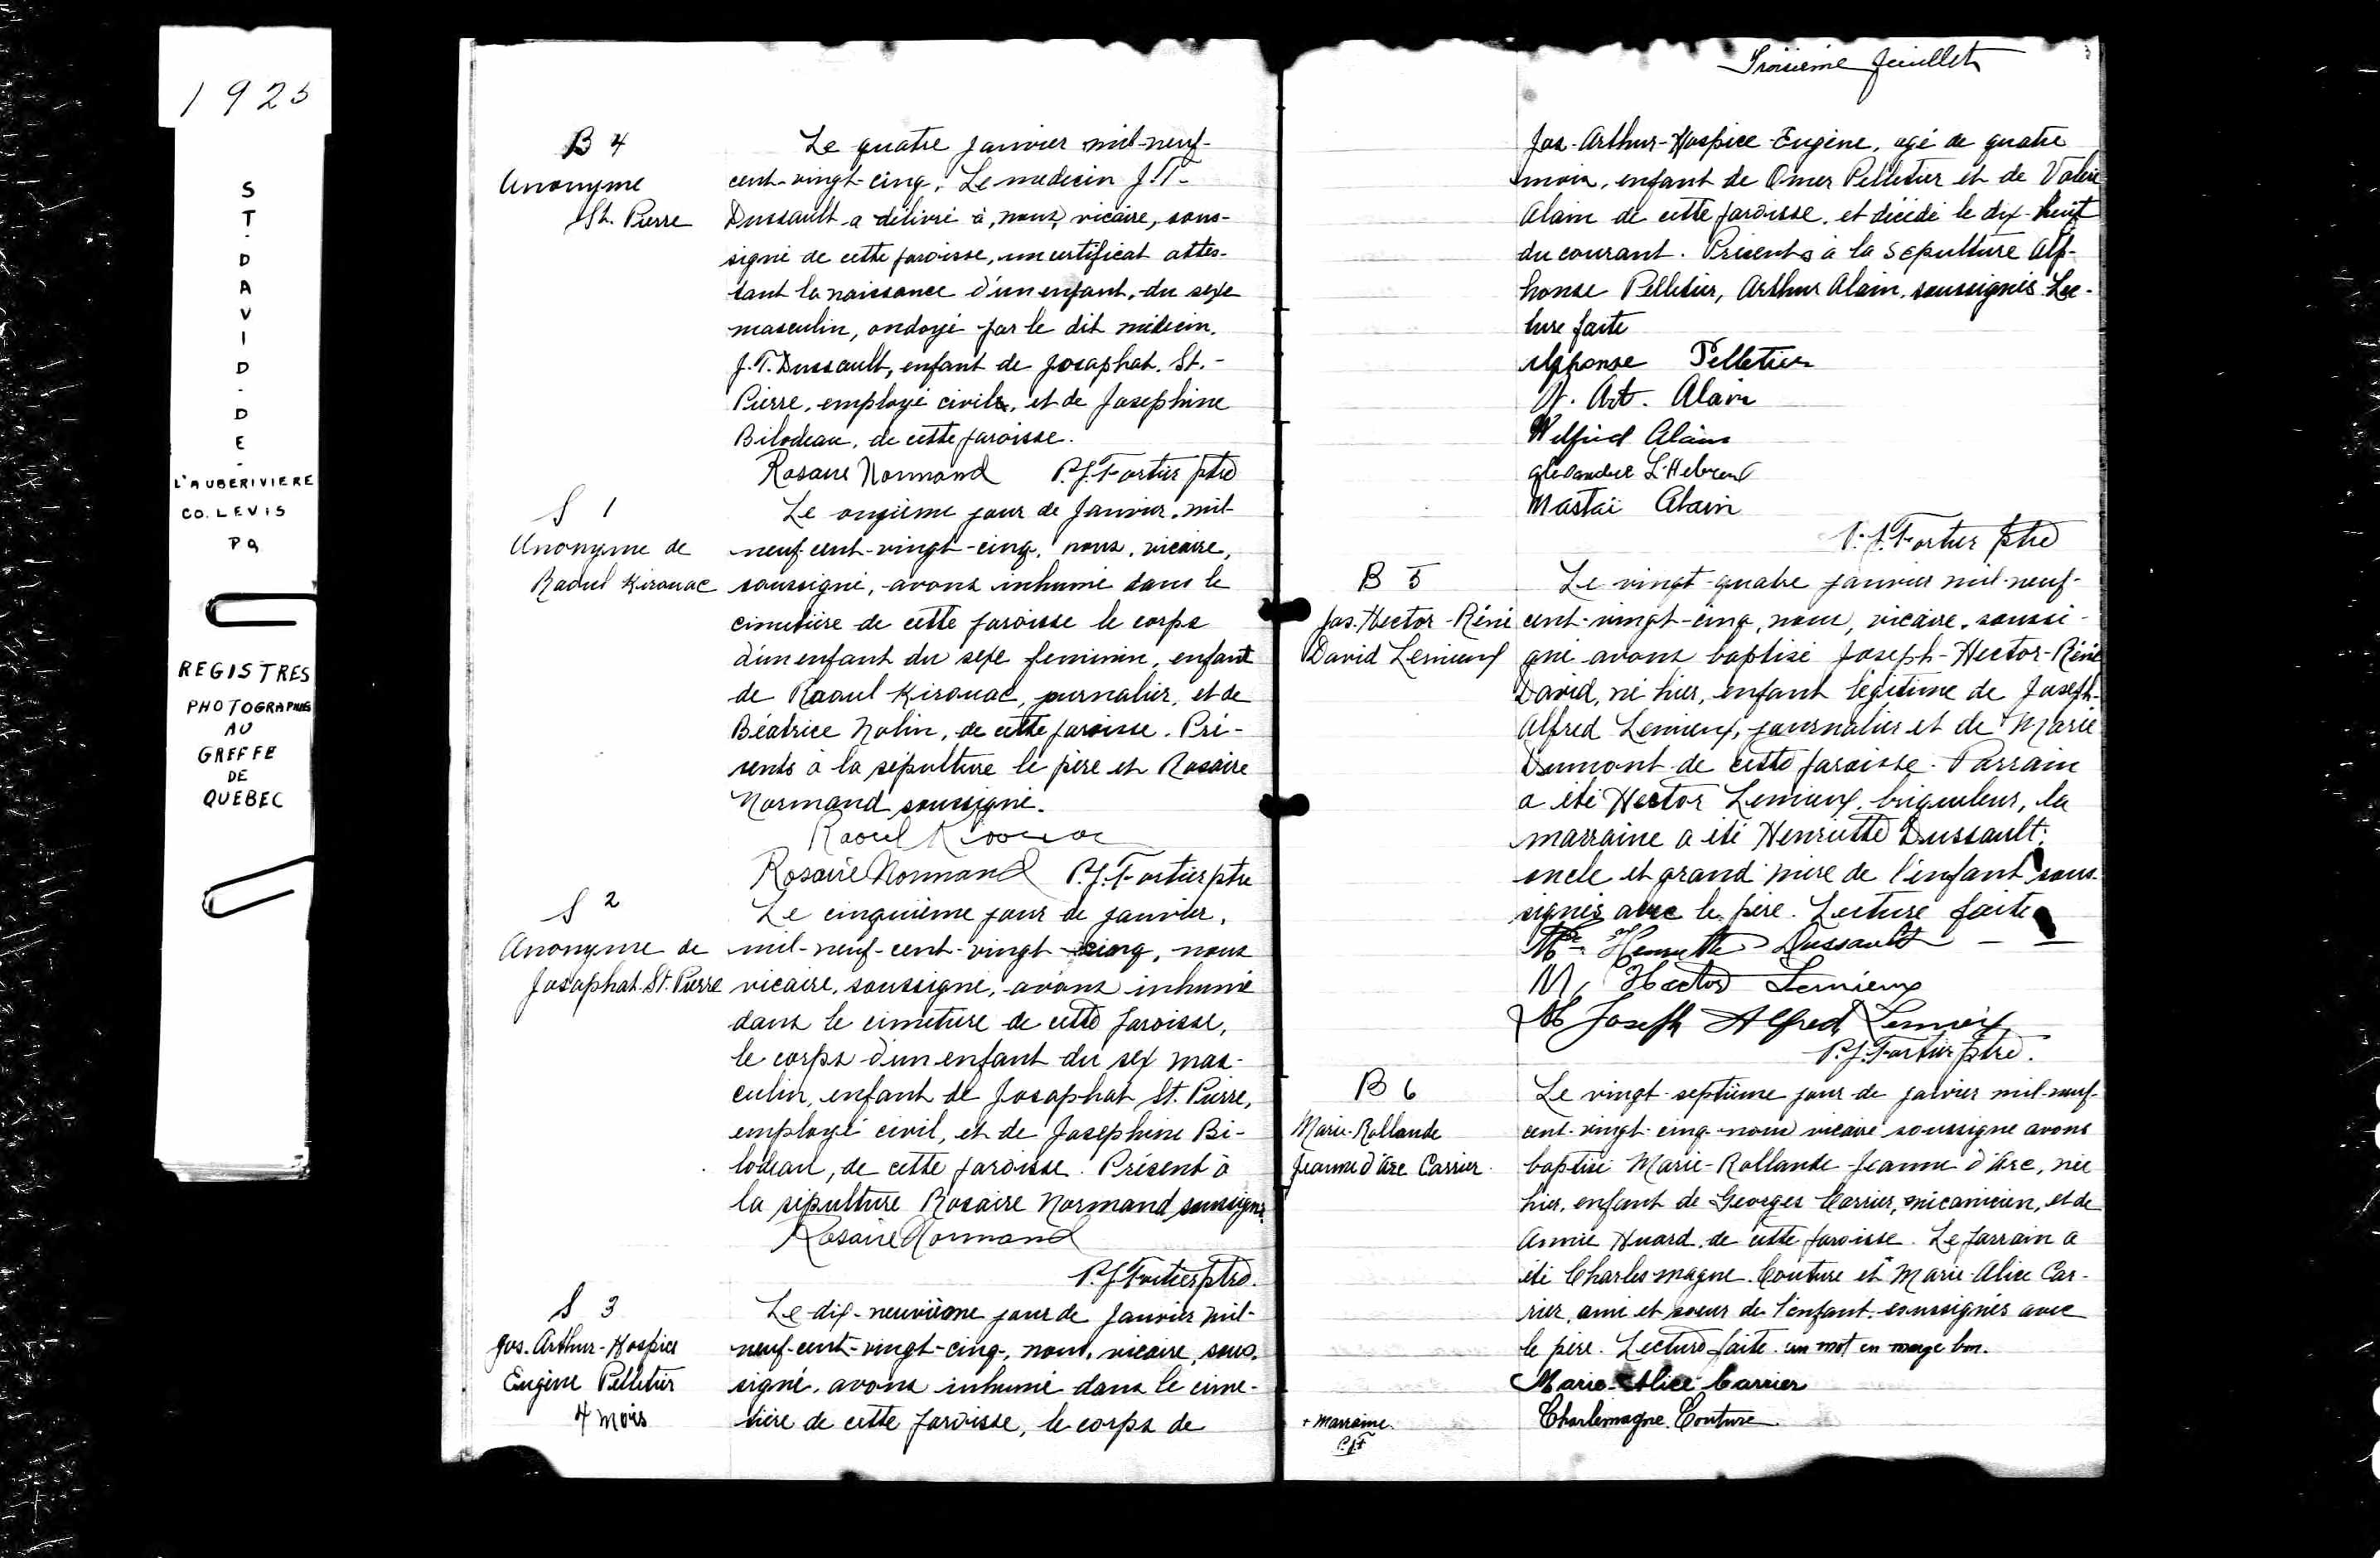 1925
S
T
.
D
A
V
I
D
-
D
E
-
L'AUBERIVIERE
CO. LEVIS
PQ
REGISTRES
PHOTOGRAPHIES
AU
GREFFE
DE
QUEBEC
B 4
Anonyme
St. Pierre
Le quatre janvier mil-neuf-
cent-vingt-cinq. Le medecin J.T.
Dussault a délivré à, nous, vicaire, sous-
signé de cette paroisse, un certificat attes-
tant la naissance d'un enfant, du sexe
masculin, ondoyé par le dit médecin.
J.T. Dussault, enfant de Josaphat St.-
Pierre, employé civil, et de Josephine
Bilodeau, de cette paroisse.
Rosaire Normand P.J. Fortier ptre
S 1
Anonyme de
Raoul Kirouac
Le onzième jour de Janvier, mil-
neuf-cent-vingt-cinq, nous, vicaire,
soussigné, avons inhumé dans le
cimetière de cette paroisse le corps
d'un enfant du sexe feminin, enfant
de Raoul Kirouac, journalier, et de
Béatrice Nolin, de cette paroisse. Pré-
sents à la sépulture le père et Rosaire
Normand soussigné.
Raoul Kirouac
Rosaire Normand P.J. Fortier ptre
S 2
Anonyme de
Josaphat St. Pierre
Le cinquième jour de janvier,
mil-neuf-cent-vingt-cinq, nous
vicaire, soussigné, avons inhumé
dans le cimetière de cette paroisse,
le corps d'un enfant du sex mas-
culin, enfant de Josaphat St. Pierre,
employé civil, et de Josephine Bi-
lodeau, de cette paroisse. Présent à
la sépulture Rosaire Normand soussigné.
Rosaire Normand
P.J. Fortier ptre.
S 3
Jos. Arthur-Hospice
Eugène Pelletier
4 mois
Le dix-neuvième jour de Janvier mil-
neuf-cent-vingt-cinq, nous, vicaire, sous-
signé, avons inhumé dans le cime-
tière de cette paroisse, le corps de
Troisième feuillet
3
Jos.-Arthur-Hospice-Eugène, agé de quatre
mois, enfant de Omer Pelletier et de Valérie
Alain de cette paroisse, et décédé le dix-huit
du courant. Présents à la sépulture Alp-
honse Pelletier, Arthur Alain, soussignés. Lec-
ture faite
Alphonse Pelletier
Art. Alain
Wilfrid Alain
Alexandre L'Hebreux
Mastaï Alain
P.J. Fortier ptre
B 5
Jos. Hector-Réné
David Lemieux
Le vingt-quatre janvier mil-neuf-
cent-vingt-cinq, nous, vicaire, soussi-
gné avons baptisé Joseph-Hector-Réné
David, né hier, enfant légitime de Joseph-
Alfred Lemieux, journalier et de Marie
Dumont de cette paroisse. Parrain
a été Hector Lemieux, briqueleur, la
marraine a été Henriette Dussault,
oncle et grand'mère de l'enfant sous-
signés avec le père. Lecture faite
Henriette Dussault
M. Hector Lemieux
M Joseph Alfred Lemieux
P.J. Fortier ptre.
B 6
Marie-Rollande
Jeanne d'Arc Carrier
Le vingt-septième jour de javier mil-neuf-
cent-vingt-cinq nous vicaire soussigné avons
baptisé Marie-Rollande-Jeanne d'Arc, née
hier, enfant de Georges Carrier, mécanicien, et de
Annie Huard, de cette paroisse. Le parrain a
été Charles-magne Couture et + Marie-Alice Car-
rier, ami et soeur de l'enfant soussignés avec
le père. Lecture faite. un mot en marge bon.
Marie-Alice Carrier
Charlemagne Couture
+ marraine.
P.J.F